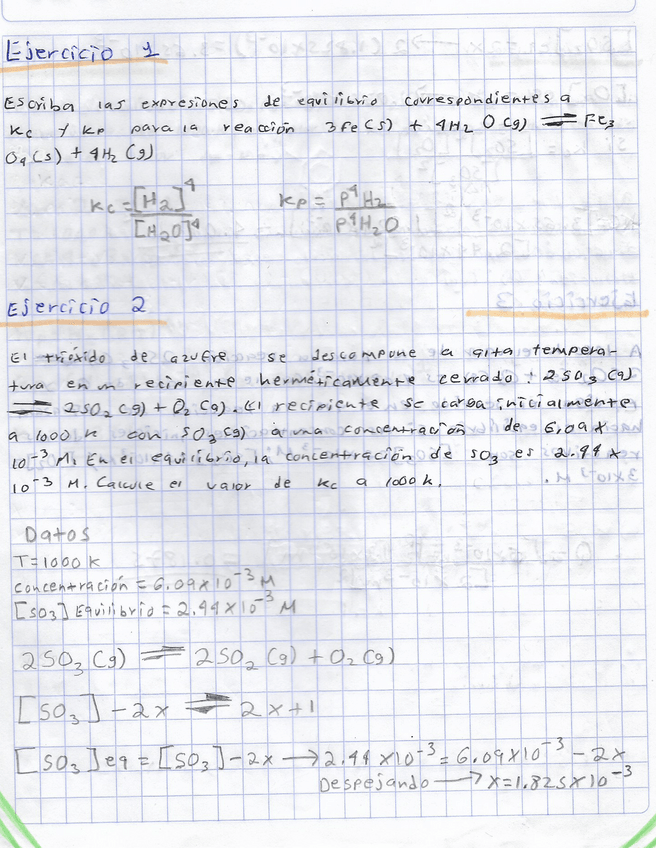 Ejercicio 1
Escriba las expresiones de equilibrio correspondientes a
Kc y Kp para la reacción 3Fe(s) + 4H2O(g) ⇌ Fe3
O4(s) + 4H2(g)
Kc = [H2]^4 / [H2O]^4 Kp = P^4H2 / P^4H2O
Ejercicio 2
El trióxido de azufre se descompone a alta tempera-
tura en un recipiente herméticamente cerrado: 2SO3(g)
⇌ 2SO2(g) + O2(g). El recipiente se carga inicialmente
a 1000 K con SO3(g) a una concentración de 6,09 x
10^-3 M. En el equilibrio, la concentración de SO3 es 2.44 x
10^-3 M. Calcule el valor de Kc a 1000 K.
Datos
T = 1000 K
Concentración = 6.09 x 10^-3 M
[SO3] Equilibrio = 2.44 x 10^-3 M
2SO3(g) ⇌ 2SO2(g) + O2(g)
[SO3] - 2x ⇌ 2x + 1
[SO3]eq = [SO3] - 2x → 2.44 x 10^-3 = 6.09 x 10^-3 - 2x
Despejando → x = 1.825 x 10^-3